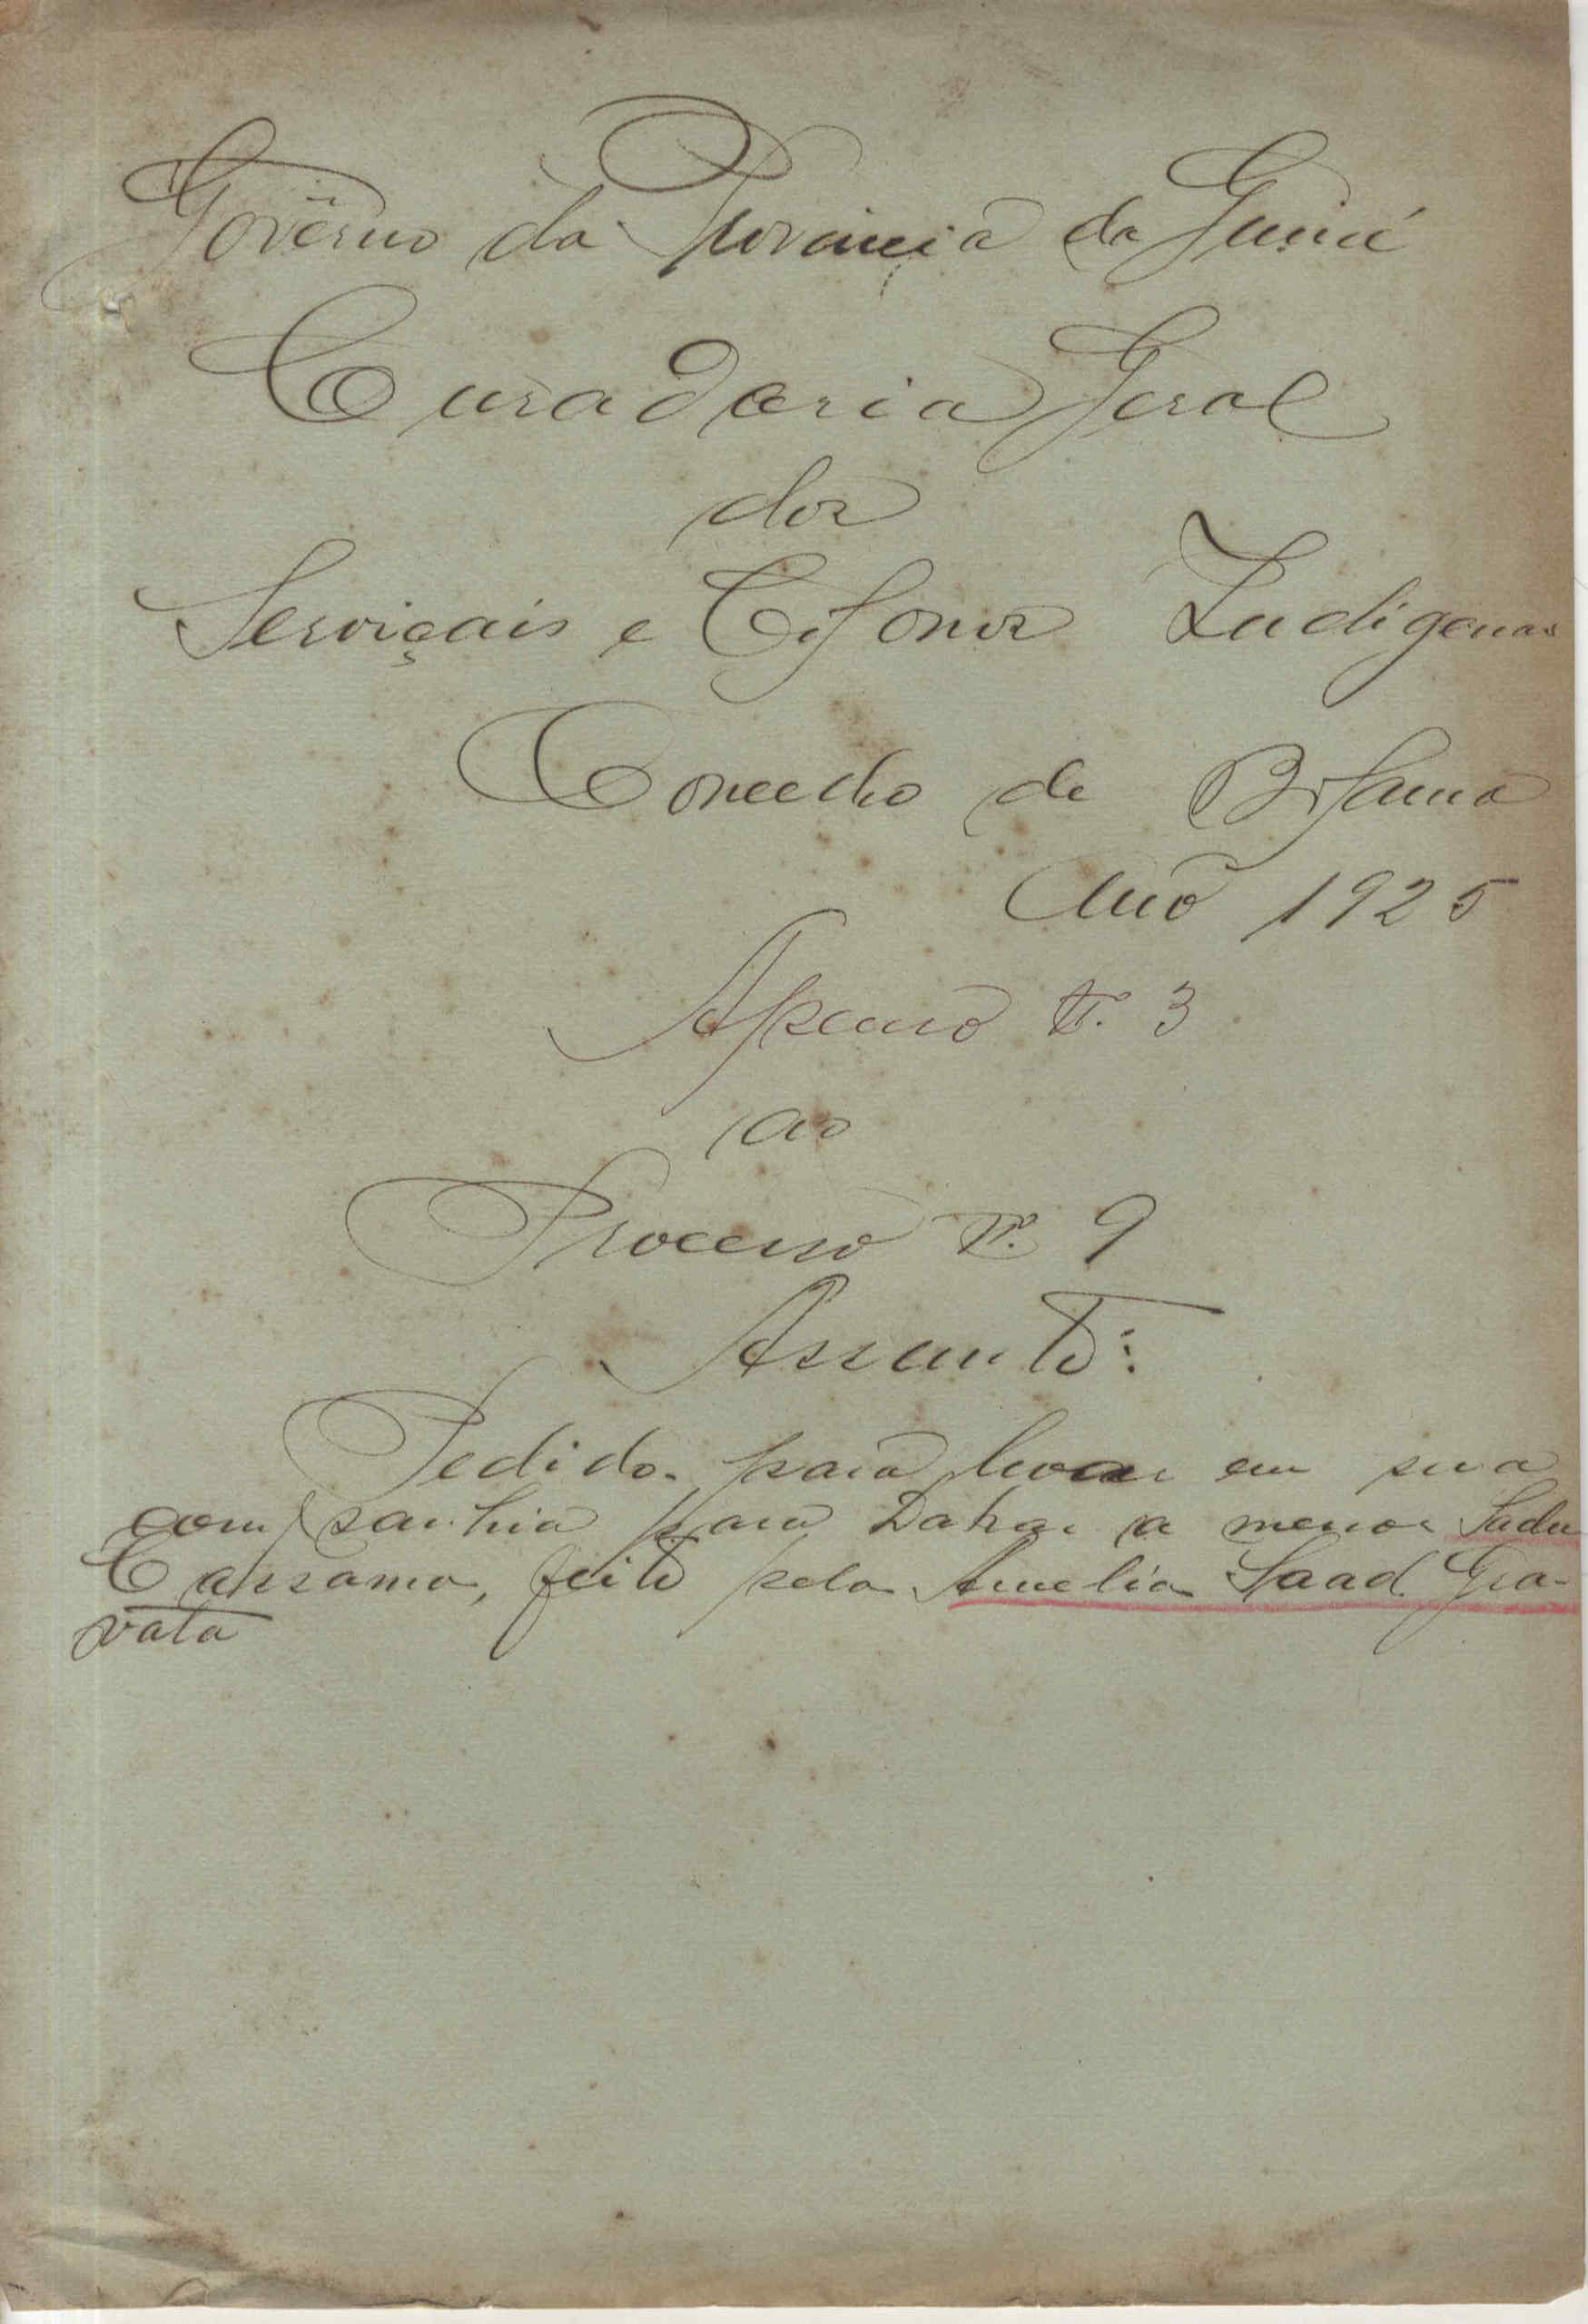 Govêrno da Provincia da Guiné
Curadoria Geral
dos
Serviçais e Colonos Indigenas
Concelho de Bolama
Ano 1925
Apenso Nº. 3
ao
Processo Nº. 9
Assunto:
Pedido para levar em sua
companhia para Dakar a menor Sadu
Cassamá, feito pela Amelia Saad Gra-
vata